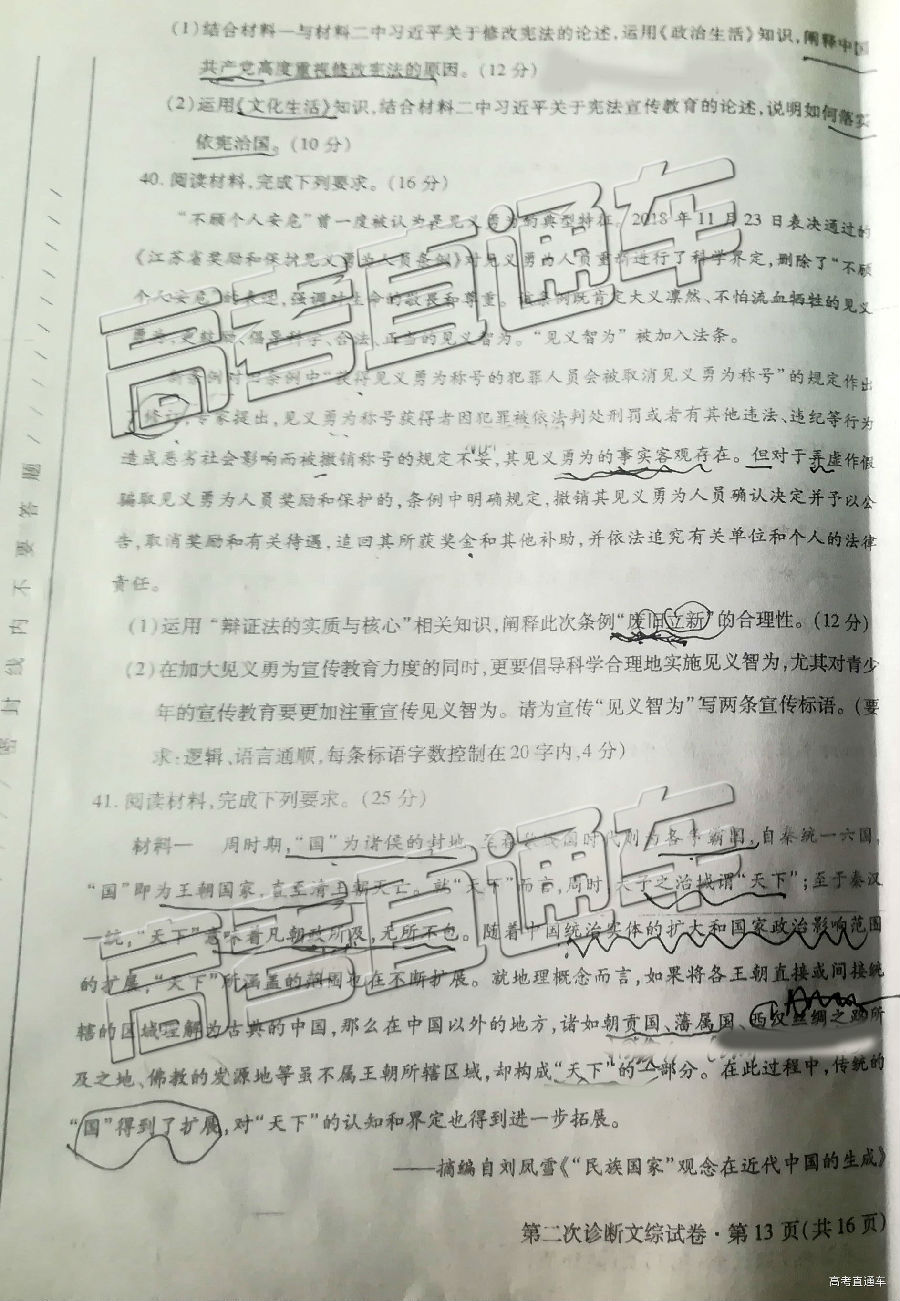 (1)结合材料一与材料二中习近平关于修改宪法的论述,运用《政治生活》知识,阐释中国
共产党高度重视修改宪法的原因。(12分)
(2)运用《文化生活》知识,结合材料二中习近平关于宪法宣传教育的论述,说明如何落实
依宪治国。(10分)
40. 阅读材料,完成下列要求。(16分)
“不顾个人安危”曾一度被认为是见义勇为的典型特征。2018年11月23日表决通过的
《江苏省奖励和保护见义勇为人员条例》对见义勇为人员重新进行了科学界定,删除了“不顾
个人安危”的表述,强调对生命的敬畏和尊重。该条例既肯定大义凛然、不怕流血牺牲的见义
勇为,更鼓励、倡导科学、合法、正当的见义智为。“见义智为”被加入法条。
新条例对旧条例中“获得见义勇为称号的犯罪人员会被取消见义勇为称号”的规定作出
了修订,专家提出,见义勇为称号获得者因犯罪被依法判处刑罚或者有其他违法、违纪等行为
造成恶劣社会影响而被撤销称号的规定不妥,其见义勇为的事实客观存在。但对于弄虚作假
骗取见义勇为人员奖励和保护的,条例中明确规定,撤销其见义勇为人员确认决定并予以公
告,取消奖励和有关待遇,追回其所获奖金和其他补助,并依法追究有关单位和个人的法律
责任。
(1)运用“辩证法的实质与核心”相关知识,阐释此次条例“废旧立新”的合理性。(12分)
(2)在加大见义勇为宣传教育力度的同时,更要倡导科学合理地实施见义智为,尤其对青少
年的宣传教育要更加注重宣传见义智为。请为宣传“见义智为”写两条宣传标语。(要
求:逻辑、语言通顺,每条标语字数控制在20字内,4分)
41. 阅读材料,完成下列要求。(25分)
材料一 周时期,“国”为诸侯的封地,至春秋战国时代则为各争霸国,自秦统一六国,
“国”即为王朝国家,直至清王朝灭亡。就“天下”而言,周时,天子之治域谓“天下”;至于秦汉
一统,“天下”意味着凡朝政所及,无所不包。随着中国统治实体的扩大和国家政治影响范围
的扩展,“天下”所涵盖的范围也在不断扩展。就地理概念而言,如果将各王朝直接或间接统
辖的区域理解为古典的中国,那么在中国以外的地方,诸如朝贡国、藩属国、西汉丝绸之路所
及之地、佛教的发源地等虽不属王朝所辖区域,却构成“天下”的一部分。在此过程中,传统的
“国”得到了扩展,对“天下”的认知和界定也得到进一步拓展。
——摘编自刘凤雪《“民族国家”观念在近代中国的生成》
第二次诊断文综试卷·第13页(共16页)
密封线内不要答题
高考直通车
高考直通车
高考直通车